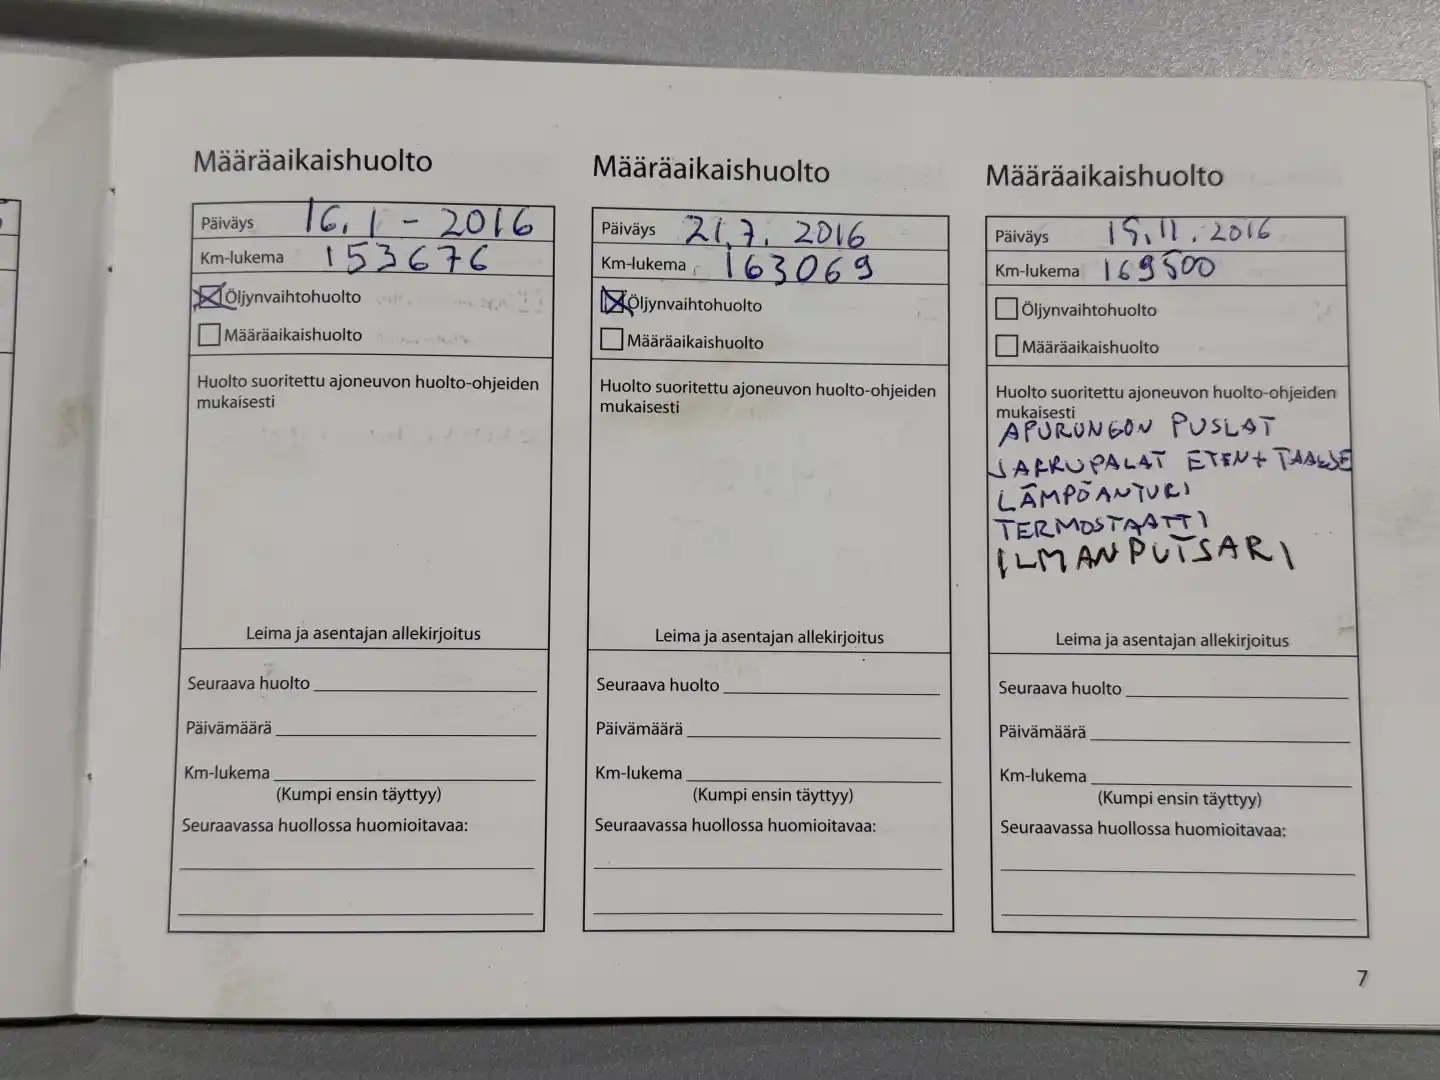 Määräaikaishuolto
Päiväys 16.1-2016
Km-lukema 153676
Öljynvaihtohuolto
Määräaikaishuolto
Huolto suoritettu ajoneuvon huolto-ohjeiden
mukaisesti
Leima ja asentajan allekirjoitus
Seuraava huolto
Päivämäärä
Km-lukema
(Kumpi ensin täyttyy)
Seuraavassa huollossa huomioitavaa:
Määräaikaishuolto
Päiväys 21.7.2016
Km-lukema 163069
Öljynvaihtohuolto
Määräaikaishuolto
Huolto suoritettu ajoneuvon huolto-ohjeiden
mukaisesti
Leima ja asentajan allekirjoitus
Seuraava huolto
Päivämäärä
Km-lukema
(Kumpi ensin täyttyy)
Seuraavassa huollossa huomioitavaa:
Määräaikaishuolto
Päiväys 19.11.2016
Km-lukema 169500
Öljynvaihtohuolto
Määräaikaishuolto
Huolto suoritettu ajoneuvon huolto-ohjeiden
mukaisesti
APURUNGON PUSLAT
JARRUPALAT ETEN+TAAKSE
LÄMPÖANTURI
TERMOSTAATTI
ILMANPUTSARI
Leima ja asentajan allekirjoitus
Seuraava huolto
Päivämäärä
Km-lukema
(Kumpi ensin täyttyy)
Seuraavassa huollossa huomioitavaa:
7